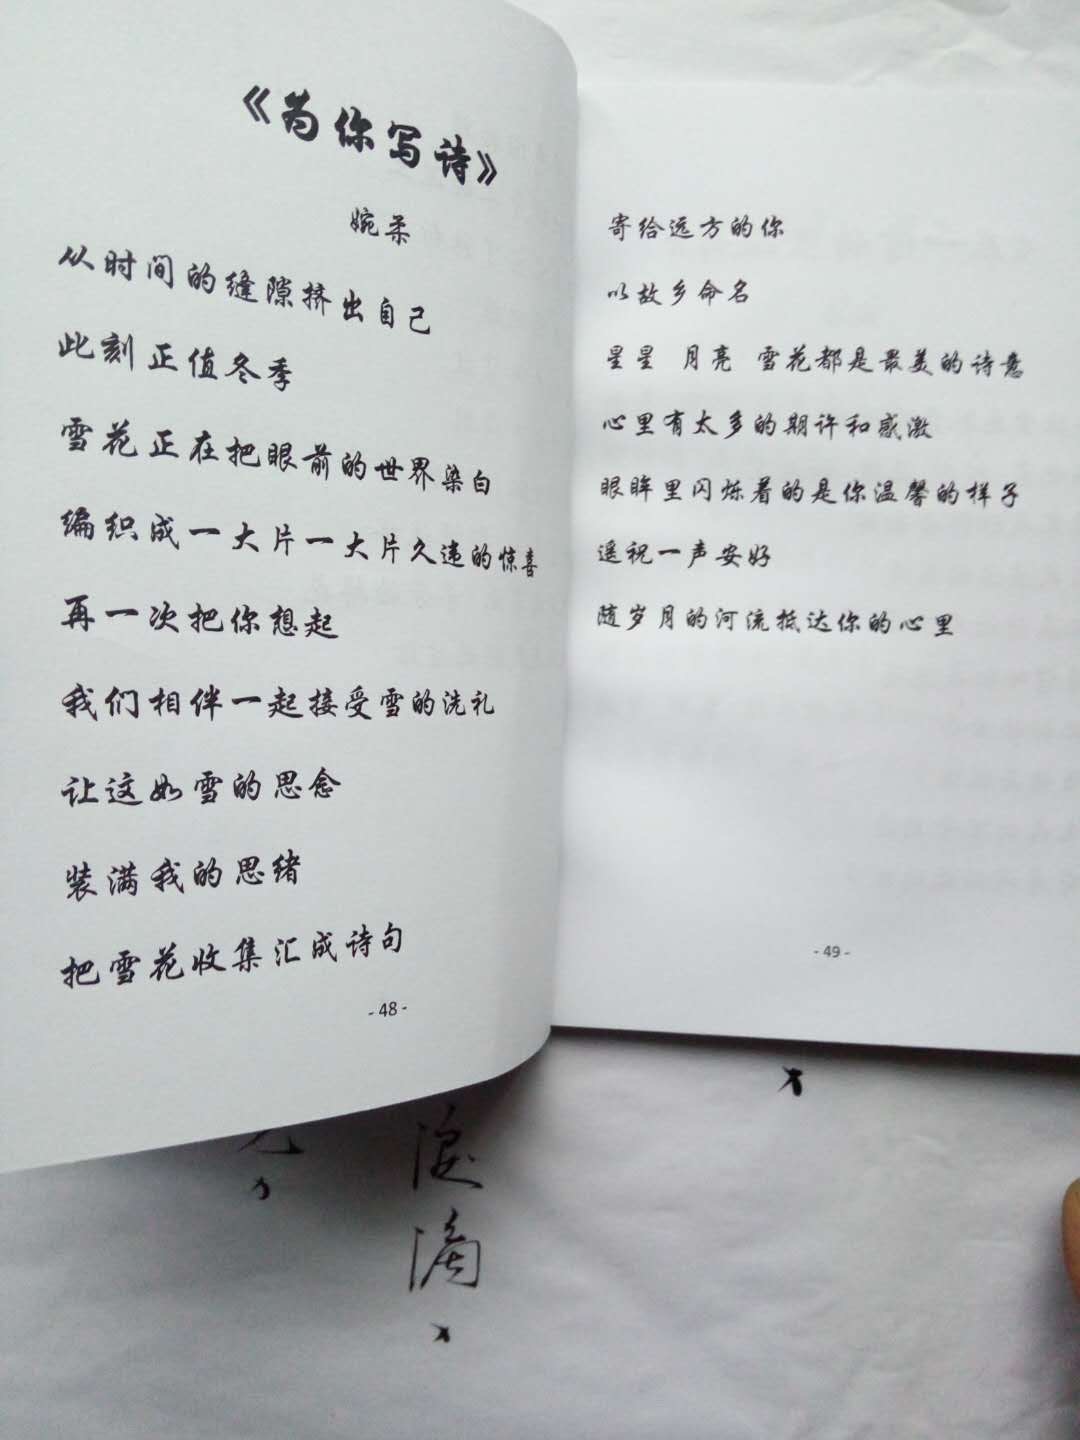 《为你写诗》
婉柔
从时间的缝隙挤出自己
此刻正值冬季
雪花正在把眼前的世界染白
编织成一大片一大片久违的惊喜
再一次把你想起
我们相伴一起接受雪的洗礼
让这如雪的思念
装满我的思绪
把雪花收集汇成诗句
- 48 -
寄给远方的你
以故乡命名
星星 月亮 雪花都是最美的诗意
心里有太多的期许和感激
眼眸里闪烁着的是你温馨的样子
遥祝一声安好
随岁月的河流抵达你的心里
- 49 -
淚
滴